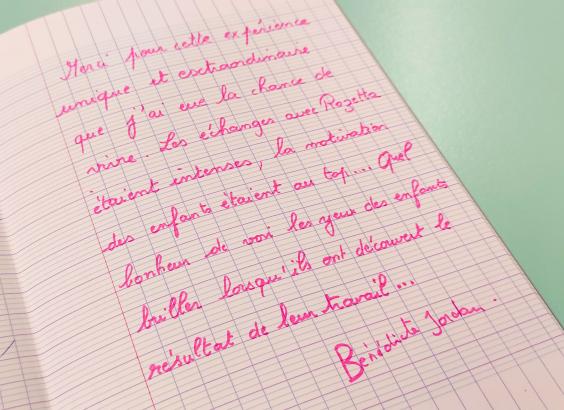 Merci pour cette expérience
unique et extraordinaire
que j'ai eue la chance de
vivre. Les échanges avec Rozetta
étaient intenses, la motivation
des enfants étaient au top... Quel
bonheur de voir les yeux des enfants
briller lorsqu'ils ont découvert le
résultat de leur travail...
Bénédicte Jordan.